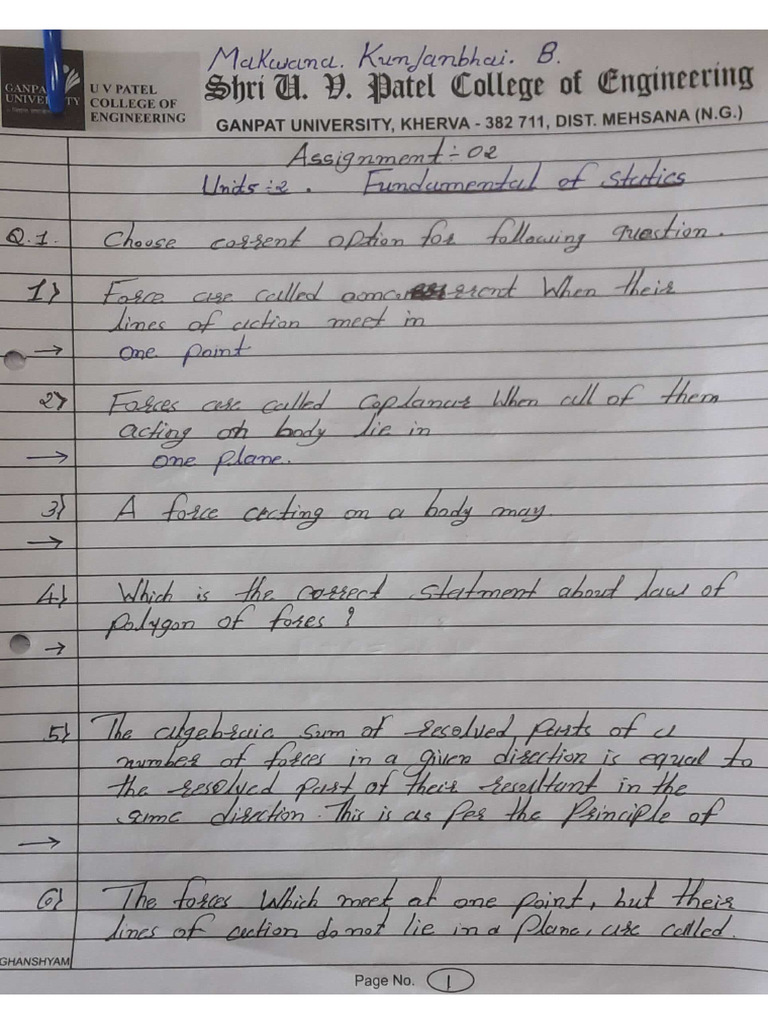 Makwana. Kunjanbhai. B.
GANPAT
UNIVERSITY
U V PATEL
COLLEGE OF
ENGINEERING
Shri U. V. Patel College of Engineering
GANPAT UNIVERSITY, KHERVA - 382 711, DIST. MEHSANA (N.G.)
Assignment:-02
Units:2. Fundamental of statics
Q.1. Choose corrent option for following question.
1) Force are called when their
lines of action meet in
→ one point
2) Forces are called Coplanar When all of them
acting on body lie in
→ one plane.
3) A force acting on a body may.
→
4) Which is the correct statment about law of
polygon of fores ?
→
5) The algebraic sum of resolved parts of a
number of forces in a given direction is equal to
the resolved part of their resultant in the
same direction. This is as per the principle of
→
6) The forces which meet at one point, but their
lines of action do not lie in a plane, are called.
GHANSHYAM
Page No. 1